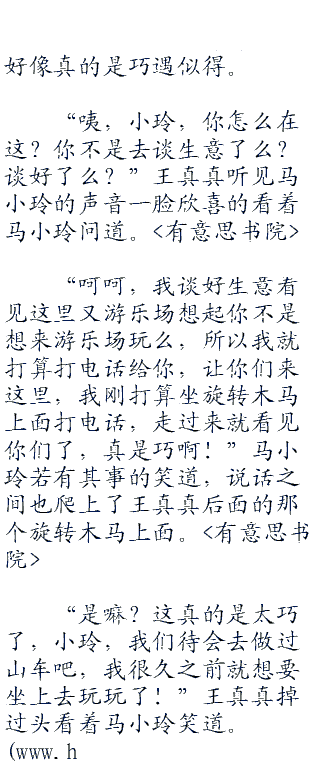 好像真的是巧遇似得。
“咦，小玲，你怎么在
这？你不是去谈生意了么？
谈好了么？”王真真听见马
小玲的声音一脸欣喜的看着
马小玲问道。<有意思书院>
“呵呵，我谈好生意看
见这里又游乐场想起你不是
想来游乐场玩么，所以我就
打算打电话给你，让你们来
这里，我刚打算坐旋转木马
上面打电话，走过来就看见
你们了，真是巧啊！”马小
玲若有其事的笑道，说话之
间也爬上了王真真后面的那
个旋转木马上面。<有意思书
院>
“是嘛？这真的是太巧
了，小玲，我们待会去做过
山车吧，我很久之前就想要
坐上去玩玩了！”王真真掉
过头看着马小玲笑道。
(www.h